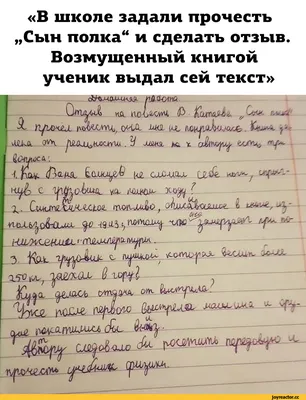 «В школе задали прочесть
„Сын полка“ и сделать отзыв.
Возмущенный книгой
ученик выдал сей текст»
Домашняя работа
Отзыв на повесть В. Катаева „Сын полка"
Я прочел повесть, она мне не понравилась. Книга да-
лека от реальности. У меня к автору есть три
вопроса:
1. Как Ваня Солнцев не сломал себе ноги, спрыг-
нув с грузовика на полном ходу?
2. Синтетическое топливо, описываемое в книге, ис-
пользовали до 1943, потому что оно замерзает при по-
нижении температуры.
3. Как грузовик с пушкой, которая весит более
250 кг, заехал в гору?
Куда делась отдача от выстрела?
Уже после первого выстрела машина и ору-
дие покатились бы вниз.
Автору следовало бы посетить передовую и
прочесть учебник физики.
joyreactor.cc